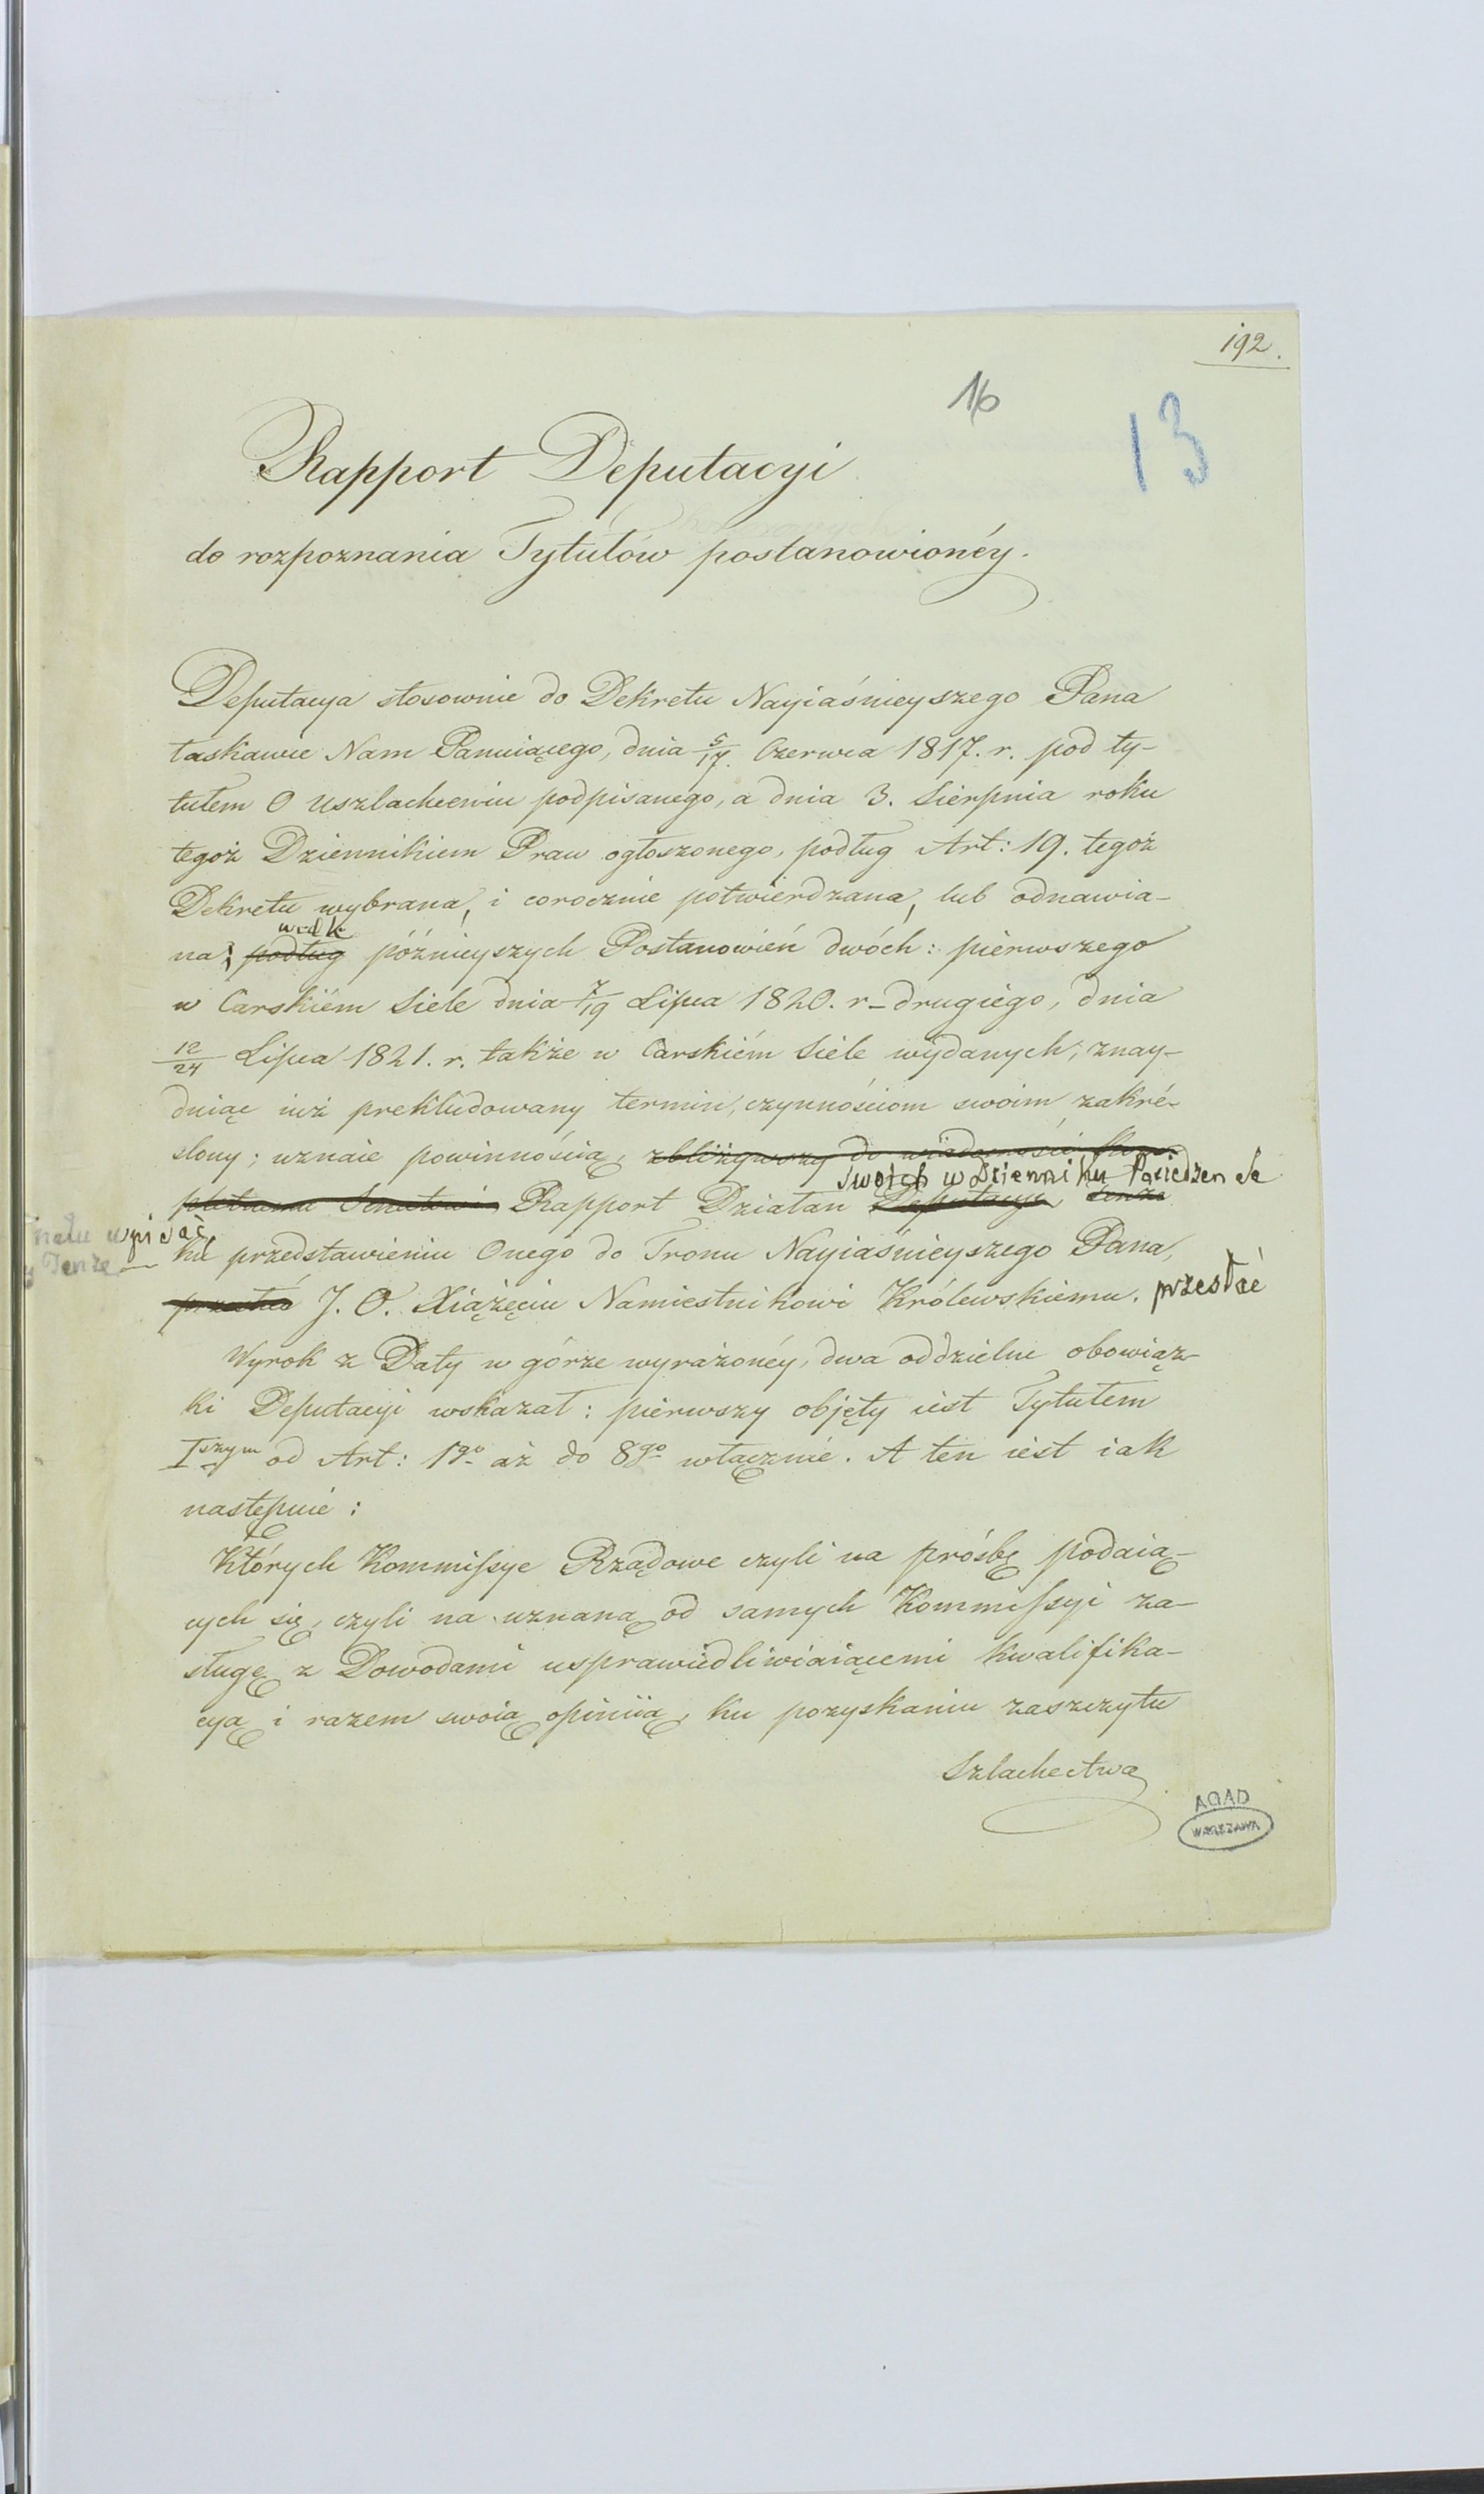 192.
16
13
Rapport Deputacyi
do rozpoznania Tytułów postanowionéy.
Deputacya stosownie do Dekretu Nayiaśnieyszego Pana
łaskawie Nam Panuiącego, dnia 5/17. Czerwca 1817. r. pod ty-
tułem O Uszlacheeniu podpisanego, a dnia 3. Sierpnia roku
tegoż Dziennikiem Praw ogłoszonego, podług Art: 19. tegoż
Dekretu wybrana, i corocznie potwierdzana, lub odnawia-
wedle
na, podług późnieyszych Postanowień dwóch: pierwszego
w Carskiém Siele dnia 7/19 Lipca 1820. r - drugiego, dnia
12/24 Lipca 1821. r. także w Carskiém Siele wydanych, znay-
duiąc iuż prekludowany termin, czynnościom swoim zakré-
slony; uznaie powinnością, zbliżywszy do wiadomości Kom-
swoich w Dzienniku Posiedzen Se
Senatowi, Rapport Działan Deputacyi,
natu wpisać
y Tenże
ku przedstawieniu Onego do Tronu Nayiaśnieyszego Pana,
J. O. Xiążęciu Namiestnikowi Królewskiemu. przesłać
Wyrok z Daty w górze wyrażonéy, dwa oddzielne obowiąz-
ki Deputacyi wskazał: pierwszy objęty iest Tytułem
Iszym od Art: 1go aż do 8go włącznie. A ten iest iak
następuie:
Których Kommissye Rządowe czyli na próśbę podaią-
cych się, czyli na uznaną od samych Kommissyi za-
sługę z Dowodami usprawiedliwiaiącemi kwalifika-
cyą i razem swoią opiniią, ku pozyskaniu zaszczytu
Szlachectwa
AGAD
WARSZAWA